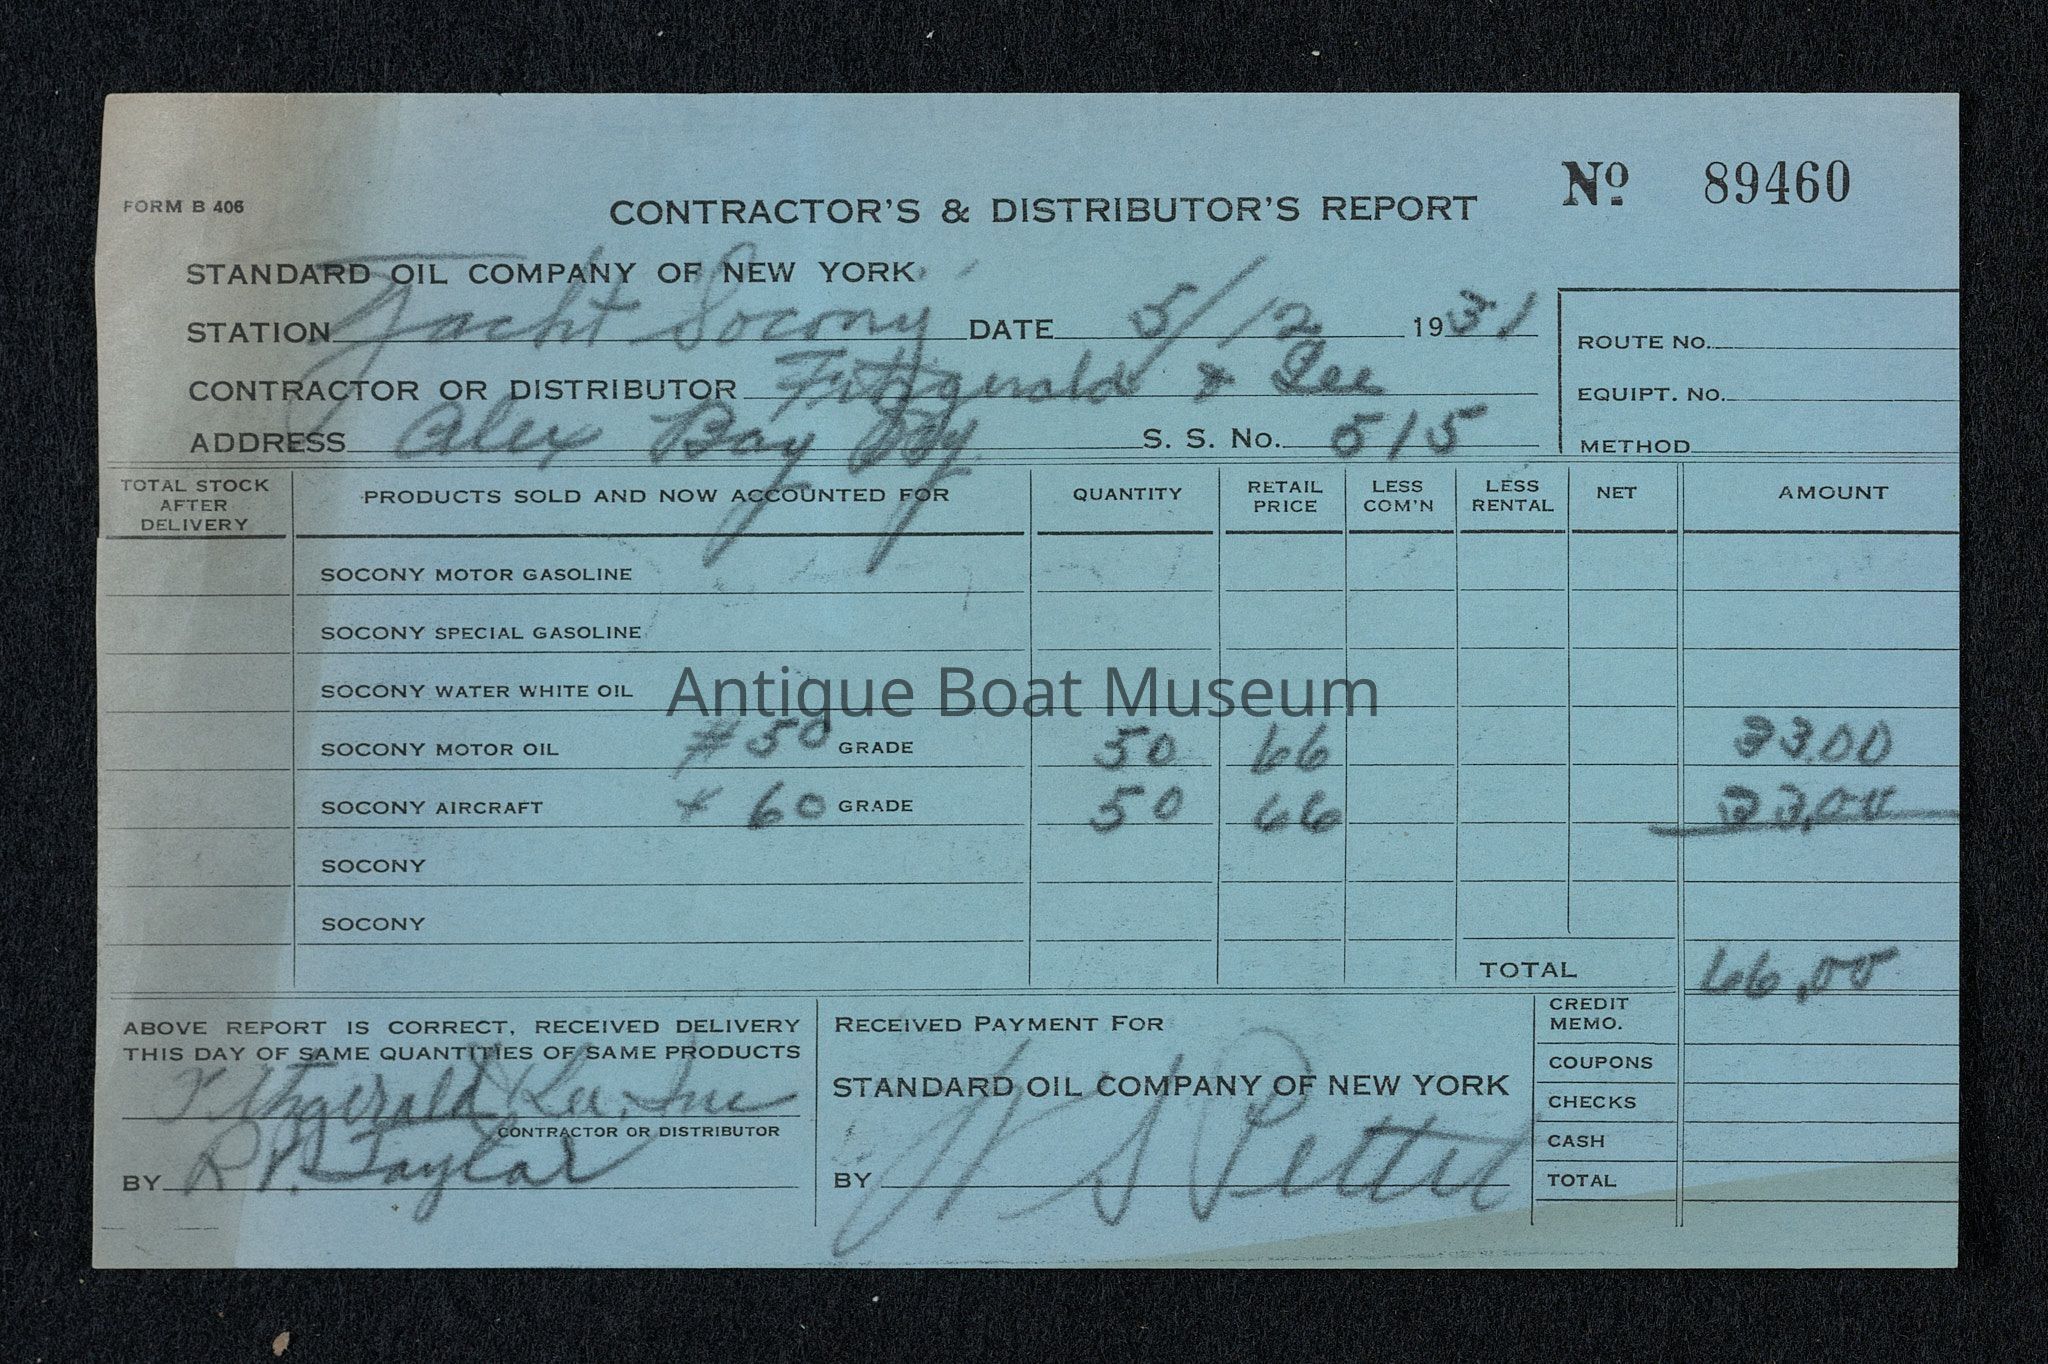 FORM B 406
CONTRACTOR'S & DISTRIBUTOR'S REPORT
No 89460
STANDARD OIL COMPANY OF NEW YORK
STATION Yacht Socony DATE 5/12 1931
CONTRACTOR OR DISTRIBUTOR Fitzgerald & Lee
ADDRESS Alex Bay S. S. No. 515
ROUTE No.
EQUIPT. No.
METHOD
TOTAL STOCK AFTER DELIVERY PRODUCTS SOLD AND NOW ACCOUNTED FOR QUANTITY RETAIL PRICE LESS COM'N LESS RENTAL NET AMOUNT
SOCONY MOTOR GASOLINE
SOCONY SPECIAL GASOLINE
SOCONY WATER WHITE OIL
Antique Boat Museum
SOCONY MOTOR OIL # 50 GRADE 50 66 33.00
SOCONY AIRCRAFT 60 GRADE 50 66 33.00
SOCONY
SOCONY
TOTAL 66.00
ABOVE REPORT IS CORRECT, RECEIVED DELIVERY
THIS DAY OF SAME QUANTITIES OF SAME PRODUCTS
Fitzgerald & Lee, Inc
CONTRACTOR OR DISTRIBUTOR
BY R P. Taylor
RECEIVED PAYMENT FOR
STANDARD OIL COMPANY OF NEW YORK
BY S Pettit
CREDIT MEMO.
COUPONS
CHECKS
CASH
TOTAL